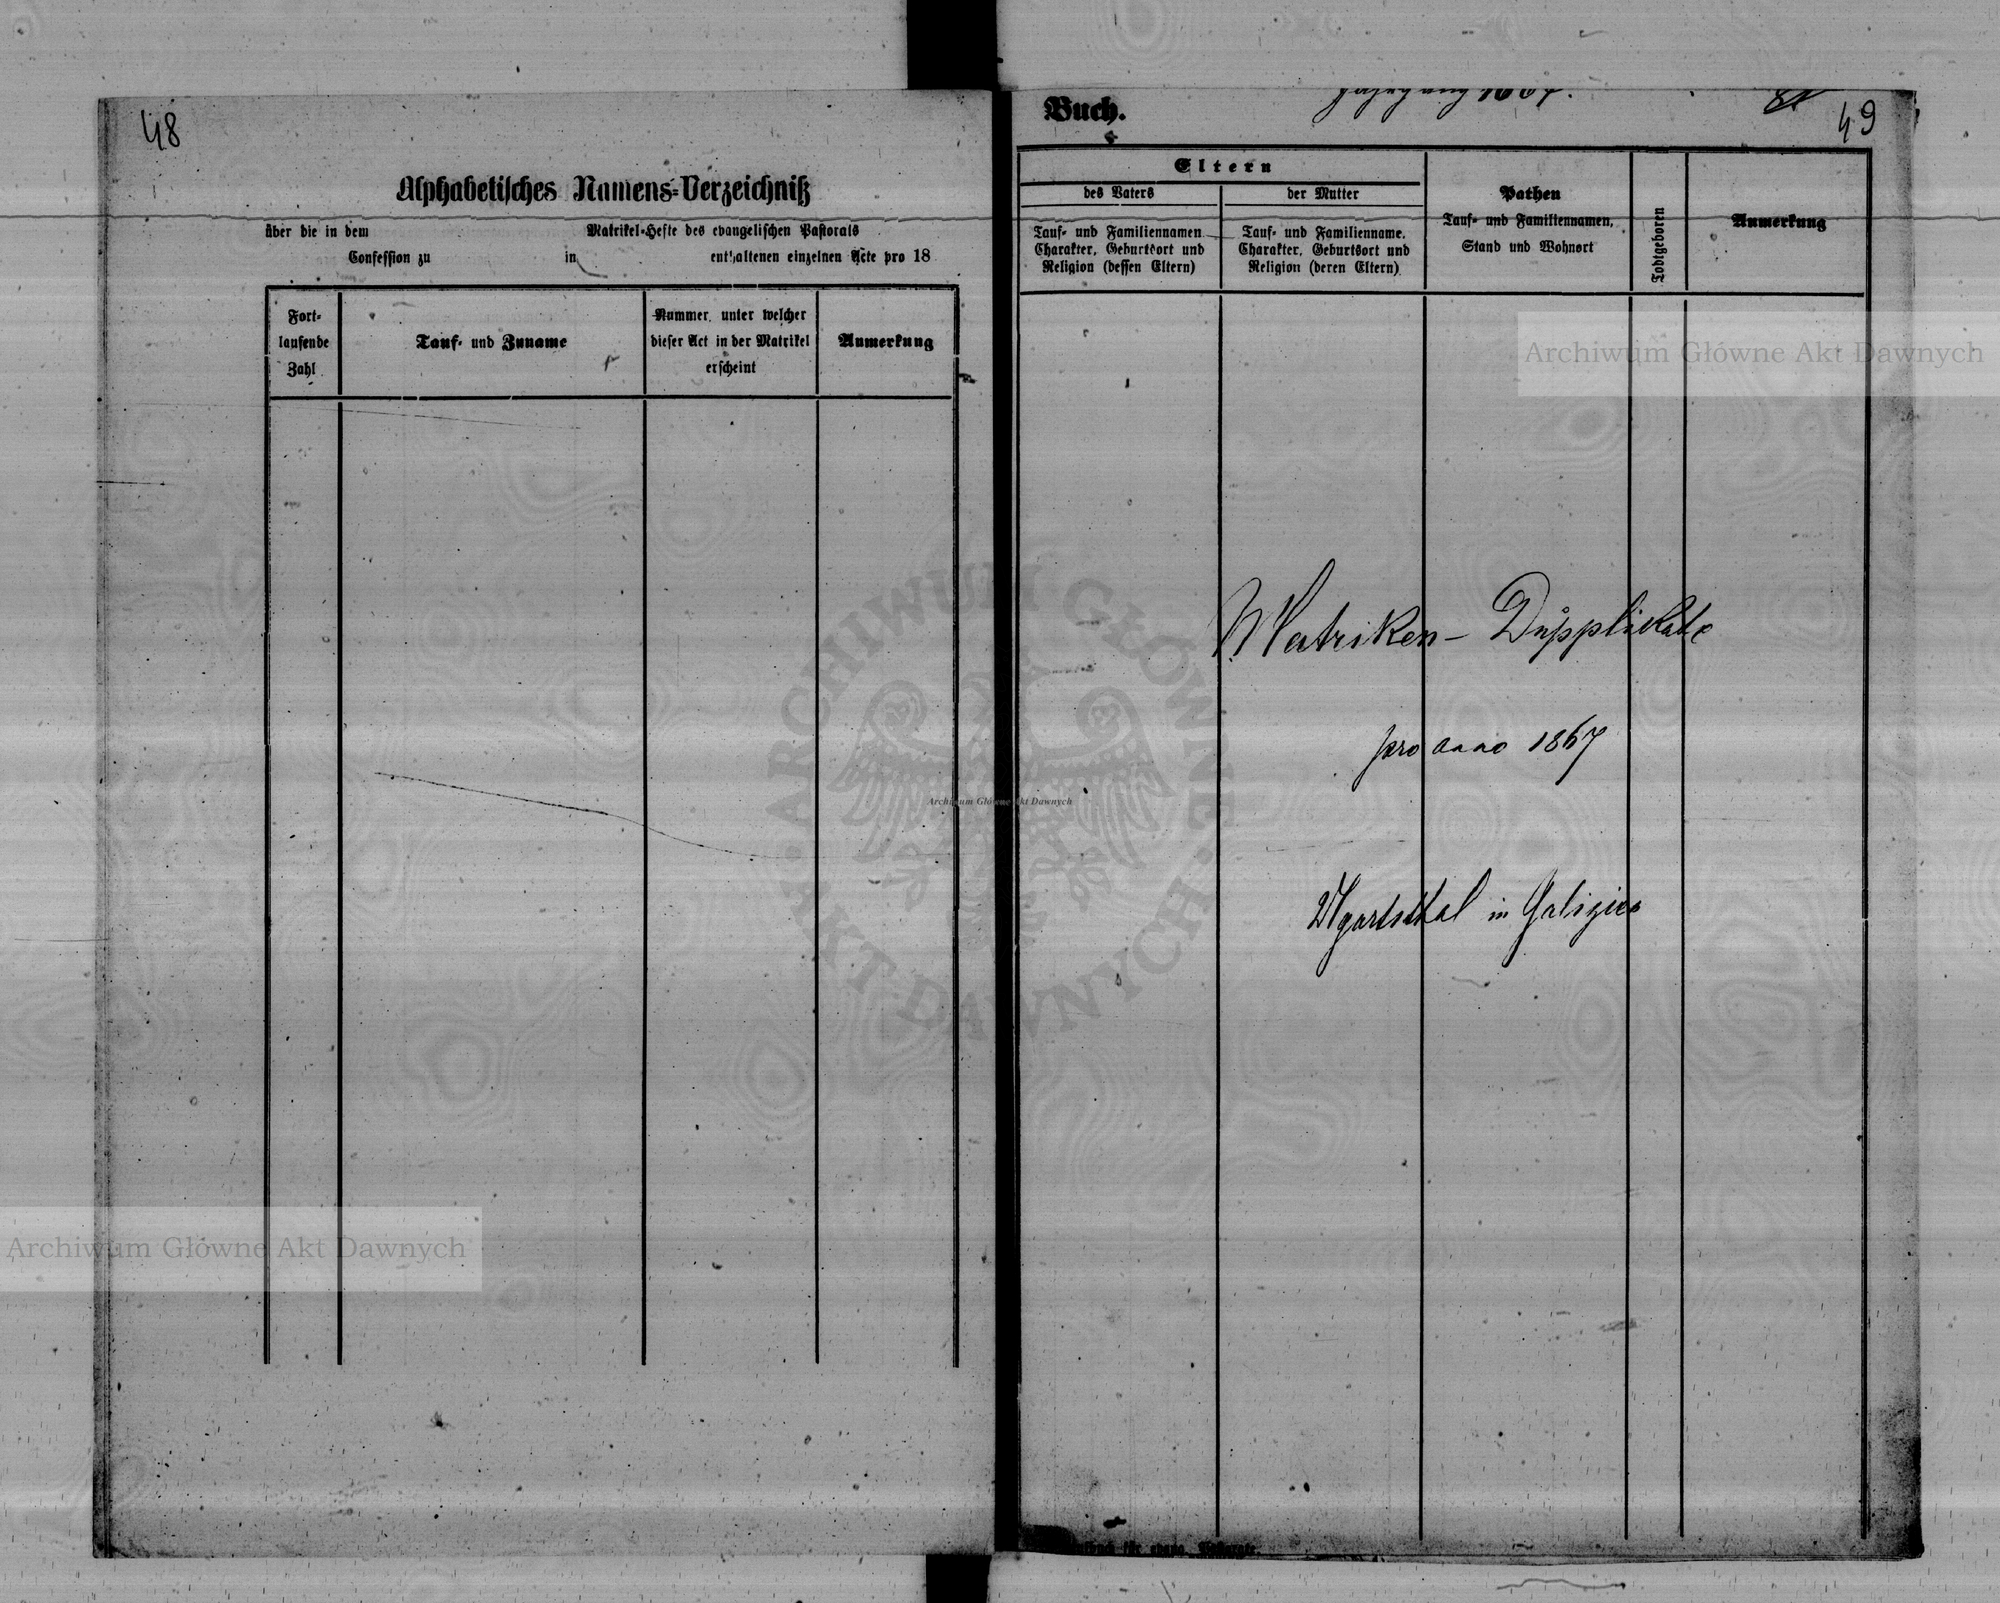 48
Alphabetisches Namens-Verzeichniß
über die in dem Matrikel-Hefte des evangelischen Pastorats
Confession zu in enthaltenen einzelnen Acte pro 18
Fort-
laufende
Zahl
Tauf- und Zuname
Nummer, unter welcher
dieser Act in der Matrikel
erscheint
Anmerkung
Buch.
Jahrgang 1867.
49
Eltern
des Vaters
der Mutter
Tauf- und Familiennamen
Charakter, Geburtsort und
Religion (dessen Eltern)
Tauf- und Familienname.
Charakter, Geburtsort und
Religion (deren Eltern)
Pathen
Tauf- und Familiennamen,
Stand und Wohnort
Todtgeboren
Anmerkung
Matriken- Dupplicate
pro anno 1867
Ugartsthal in Galizien
für evang. Pastorate.
Archiwum Główne Akt Dawnych
ARCHIWUM GŁÓWNE · AKT DAWNYCH ·
Archiwum Główne Akt Dawnych
Archiwum Główne Akt Dawnych